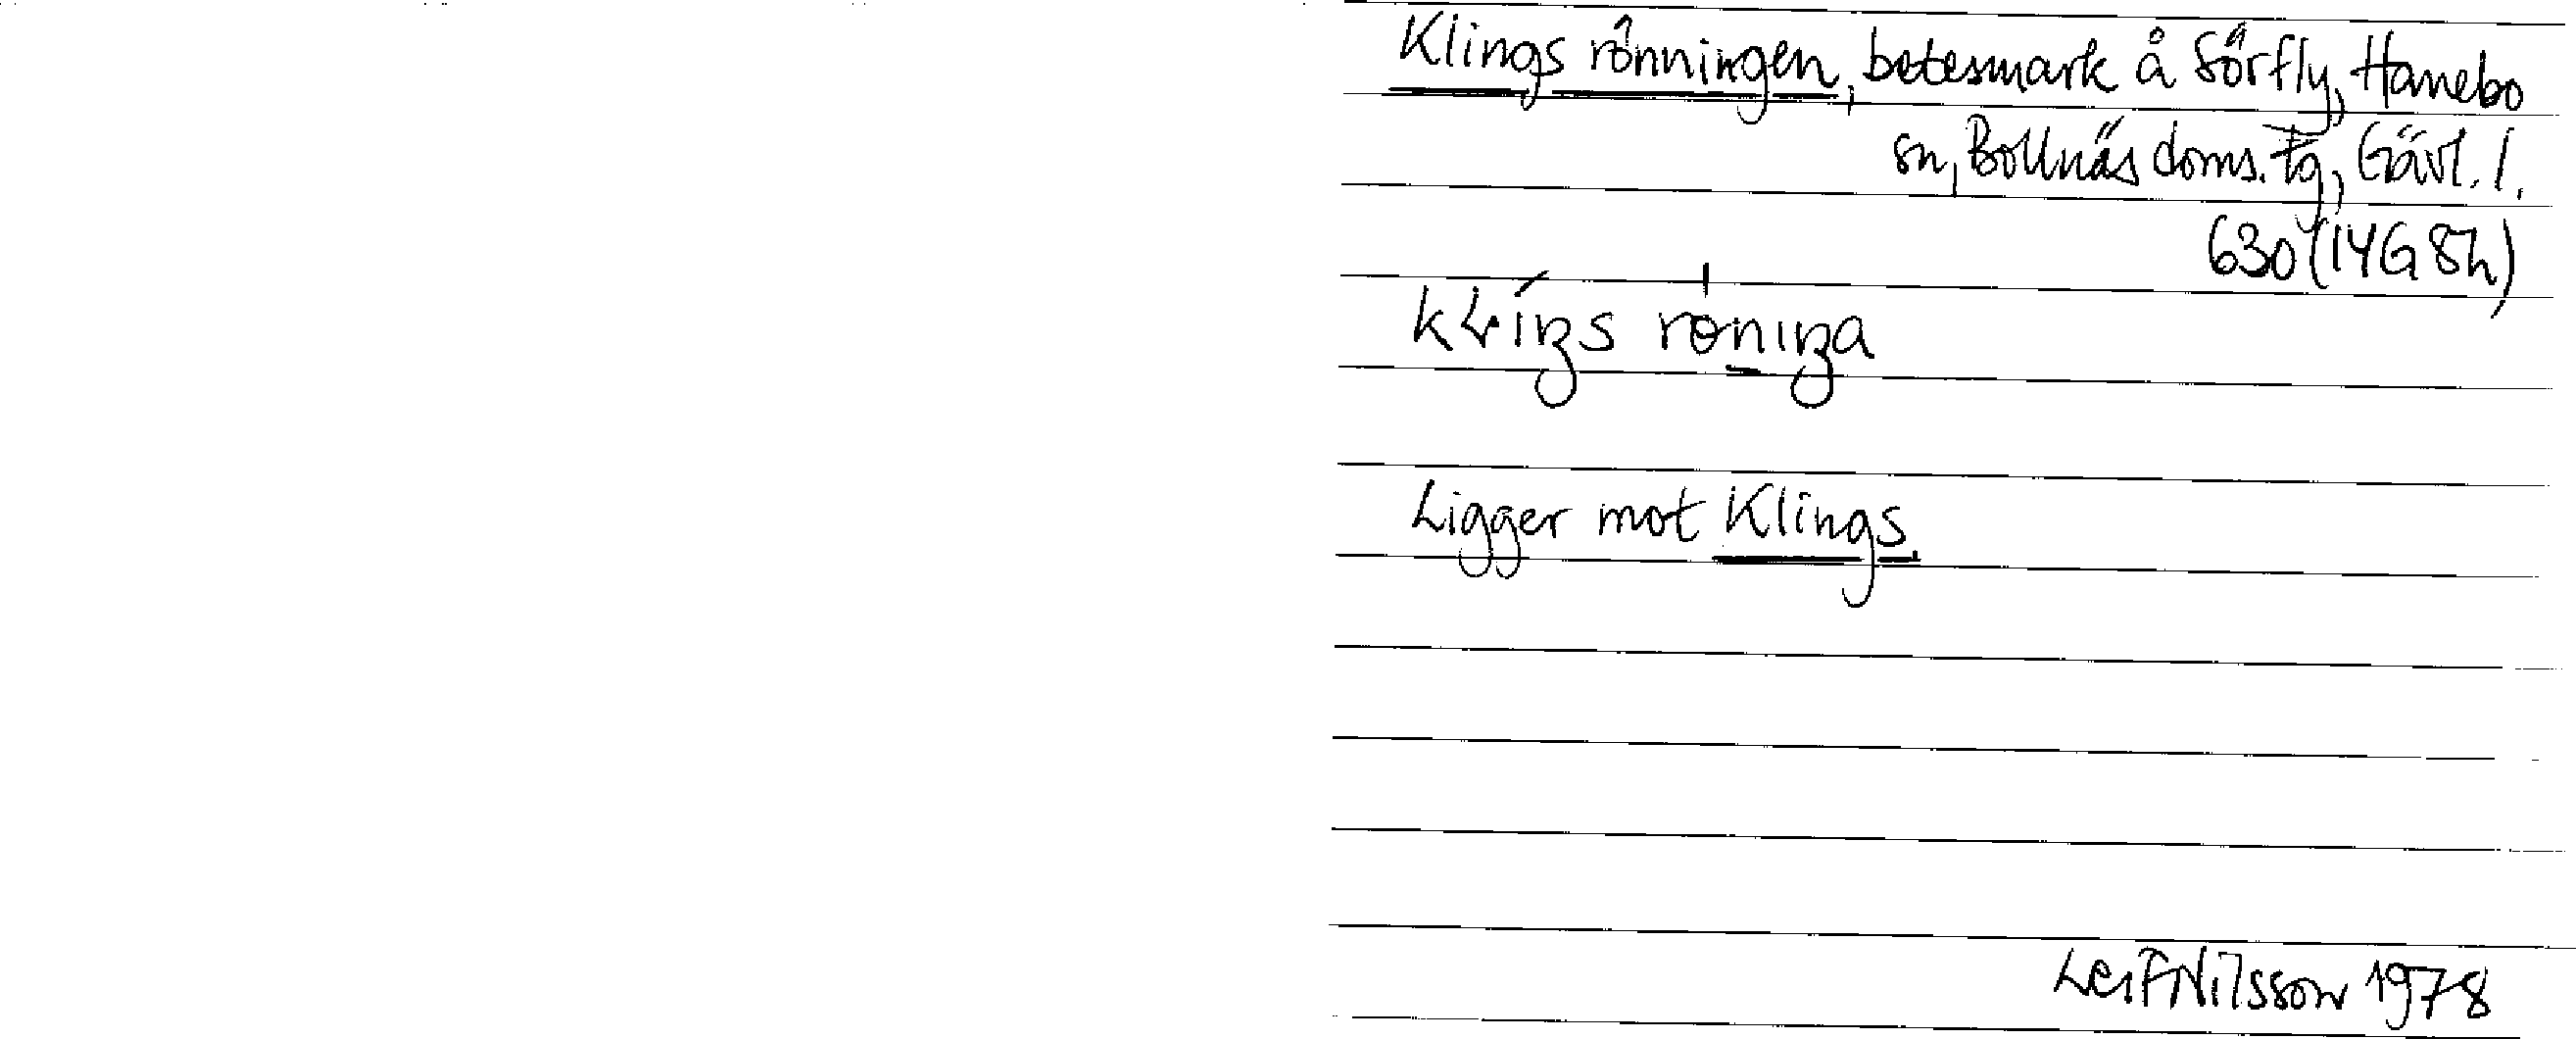 Klings rönningen, betesmark å Sörfly, Hanebo
sn, Bollnäs doms. tg, Gävl. l.
630 (14G 8h)
Ligger mot Klings.
Leif Nilsson 1978